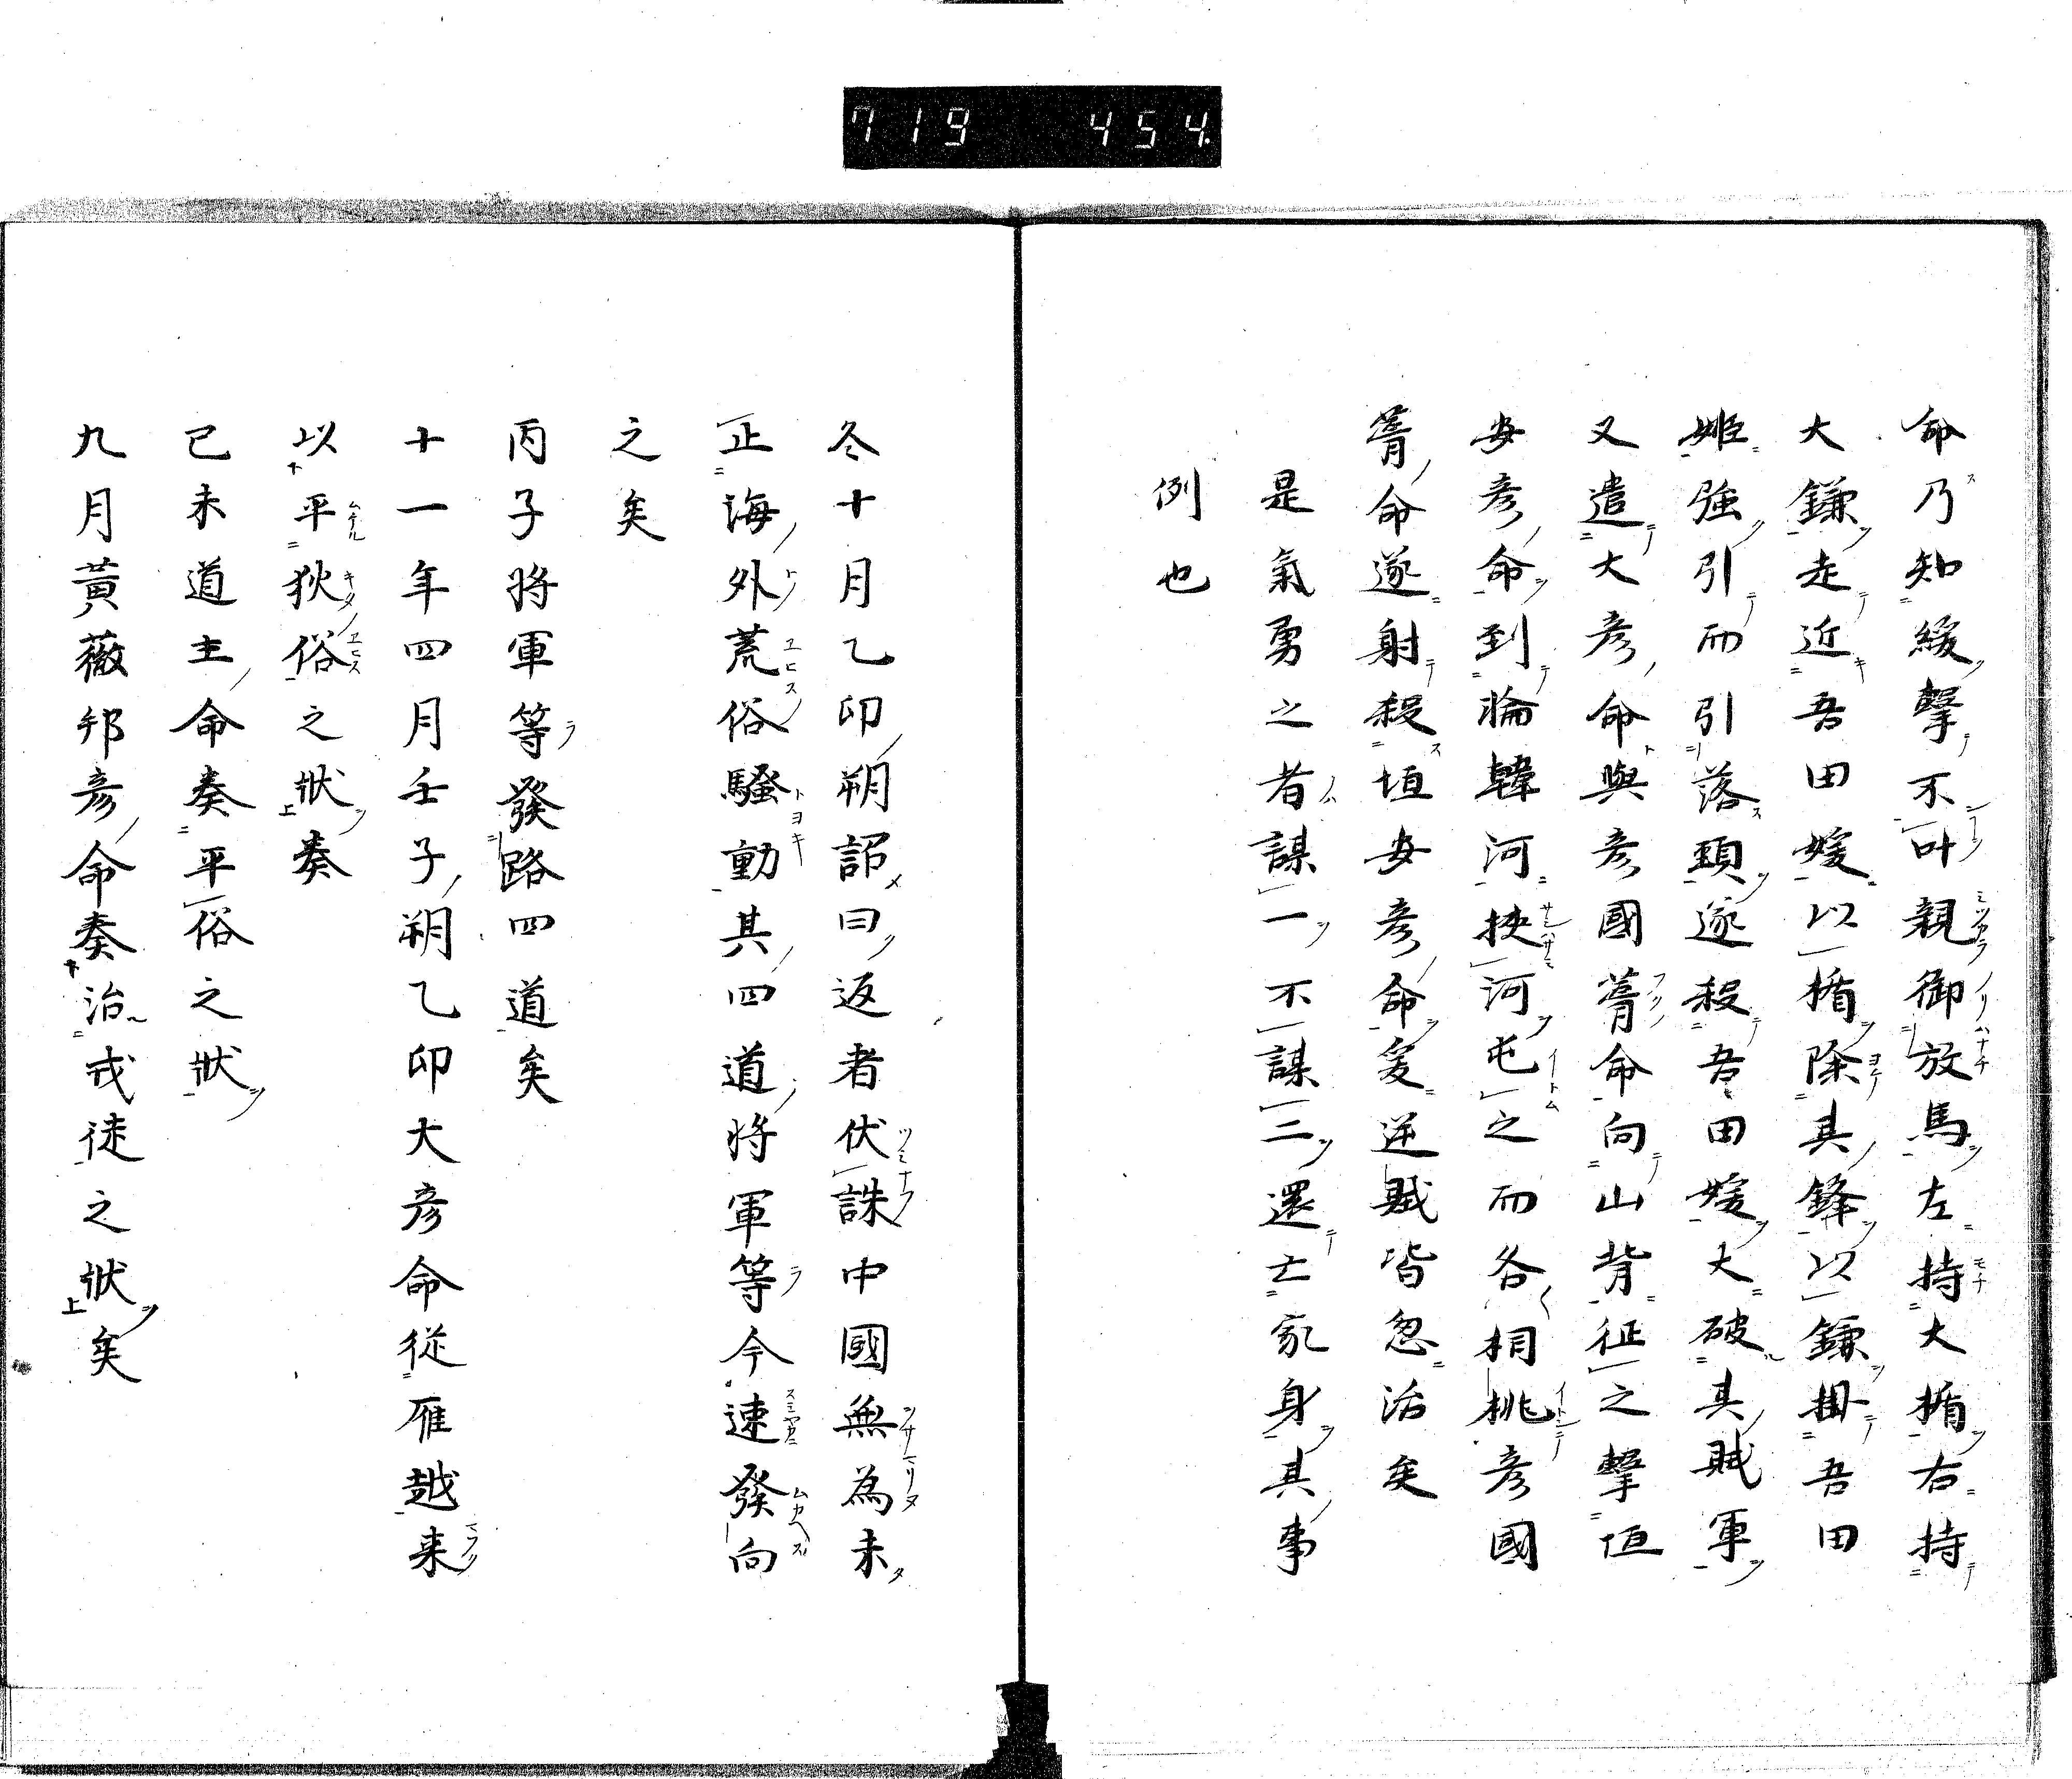 719 454.
命乃知緩擊不叶親御放馬左持大楯右持
大鎌走近吾田媛以楯除其鋒以鎌掛吾田
姫強引而引落頸遂殺吾田媛大破其賊軍
又遣大彦命與彦國葺命向山背征之擊垣
安彦命到輪韓河挾河屯之而各相挑彦國
葺命遂射殺垣安彦命爰逆賊皆忽治矣
是氣勇之者謀一不謀二還亡家身其事
例也
冬十月乙卯朔詔曰返者伏誅中國無為未
正海外荒俗騒動其四道将軍等今速發向
之矣
丙子将軍等發路四道矣
十一年四月壬子朔乙卯大彦命従雁越来
以平狄俗之狀奏
己未道主命奏平俗之狀
九月黄薇邦彦命奏治戎徒之狀矣